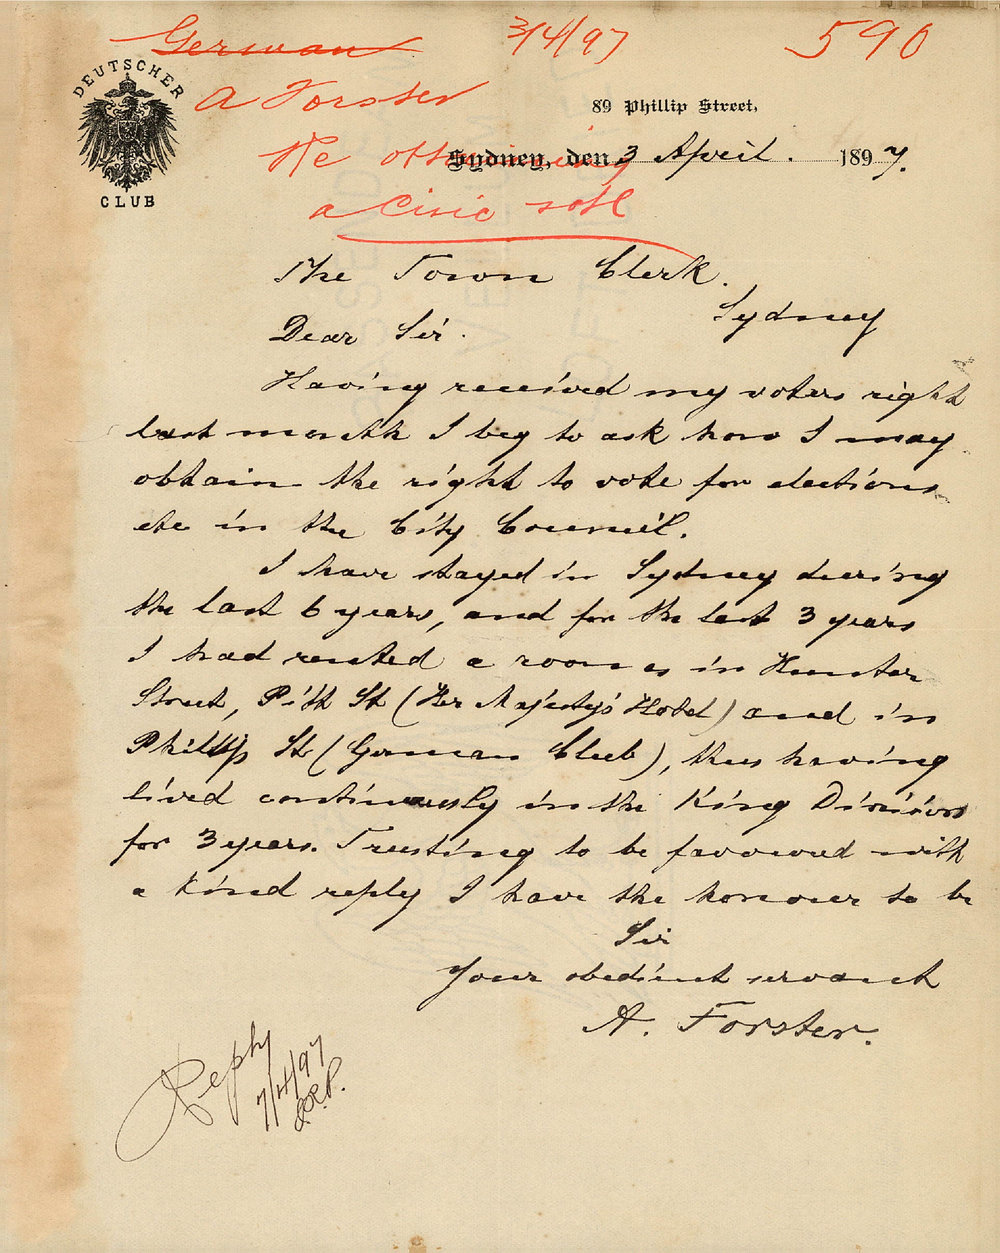 German 3/4/97 590
DEUTSCHER
CLUB
A Forster
89 Phillip Street,
Re obtaining
Sydney, den 3 April. 1897.
a Civic vote
The Town Clerk.
Sydney
Dear Sir.
Having received my voters right
last month I beg to ask how I may
obtain the right to vote for elections
etc in the City Council.
I have stayed in Sydney during
the last 6 years, and for the last 3 years
I had rented a room es in Hunter
Street, Pitt St (Her Majesty's Hotel) and in
Phillip St (German Club), thus having
lived continuously in the King Division
for 3 years. Trusting to be favoured with
a kind reply I have the honour to be
Sir
Your obedient servant
A. Forster.
Reply
7/4/97